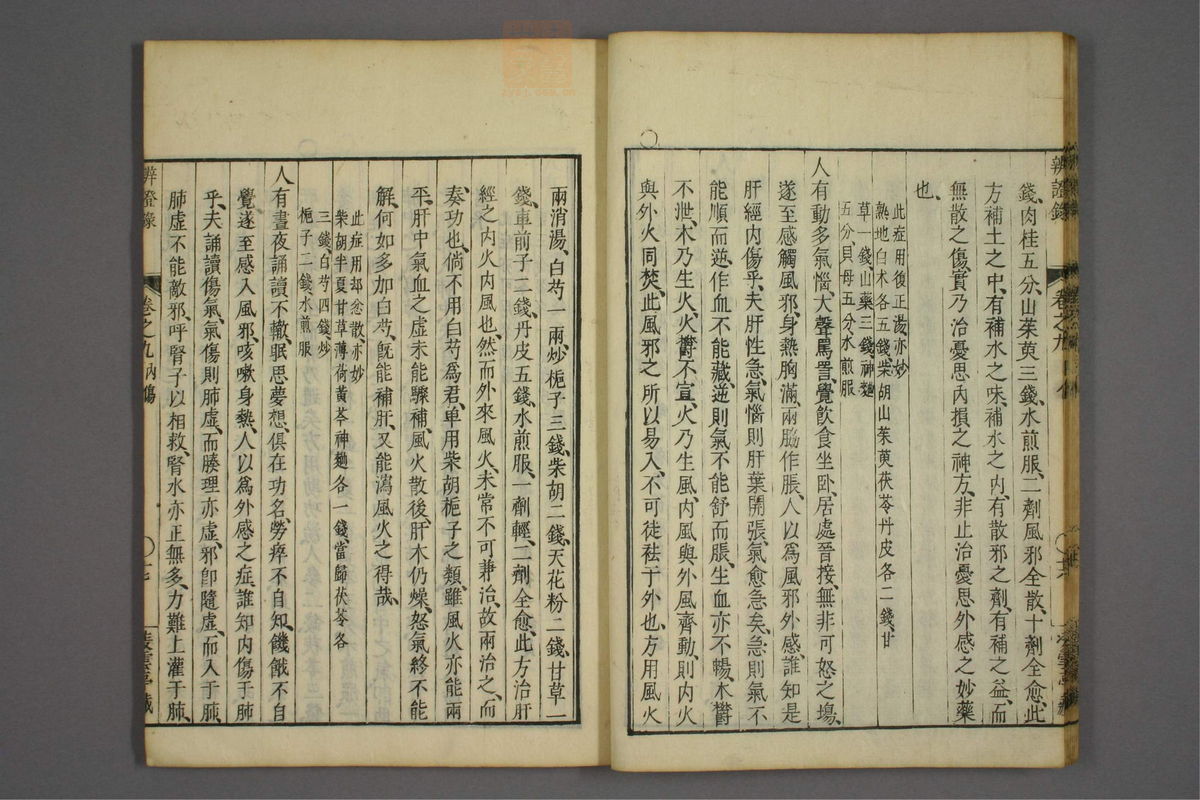 辨證錄
錢、肉桂五分、山茱萸三錢、水煎服、二劑風邪全散、十劑全愈、此
方補土之中、有補水之味、補水之內、有散邪之劑、有補之益、而
無散之傷、實乃治憂思內損之神方、非止治憂思外感之妙藥
也、
此症用後正湯亦妙
熟地白朮各五錢、柴胡山茱萸茯苓丹皮各二錢、甘
草一錢、山藥三錢、神麯
五分貝母五分、水煎服
人有動多氣惱、大聲罵詈、覺飲食坐卧、居處晉接、無非可怒之塲、
遂至感觸風邪、身熱胸滿、兩脇作脹、人以爲風邪外感、誰知是
肝經內傷乎、夫肝性急、氣惱則肝葉開張、氣愈急矣、急則氣不
能順而逆作、血不能藏、逆則氣不能舒而脹生、血亦不暢、木欝
不泄、木乃生火、火欝不宣、火乃生風、內風與外風齊動、則內火
與外火同焚、此風邪之所以易入、不可徒祛于外也、方用風火
兩消湯、白芍一兩、炒梔子三錢、柴胡二錢、天花粉二錢、甘草一
錢、車前子二錢、丹皮五錢、水煎服、一劑輕、二劑全愈、此方治肝
經之內火內風也、然而外來風火、未常不可兼治、故兩治之、而
奏功也、倘不用白芍爲君、单用柴胡梔子之類、雖風火亦能兩
平、肝中氣血之虛、未能驟補、風火散後、肝木仍燥、怒氣終不能
解、何如多加白芍、旣能補肝、又能瀉風火之得哉、
此症用却忿散、亦妙
柴胡半夏甘草薄荷黃芩神麯各一錢、當歸茯苓各
三錢、白芍四錢、炒
梔子二錢、水煎服
人有晝夜誦讀不輟、眠思夢想、俱在功名、勞瘁不自知、饑餓不自
覺、遂至感入風邪、咳嗽身熱、人以爲外感之症、誰知內傷于肺
乎、夫誦讀傷氣、氣傷則肺虛、而腠理亦虛、邪卽隨虛、而入于肺、
肺虛不能敵邪、呼腎子以相救、腎水亦正無多、力難上灌于肺、
辨證錄
卷之九內傷